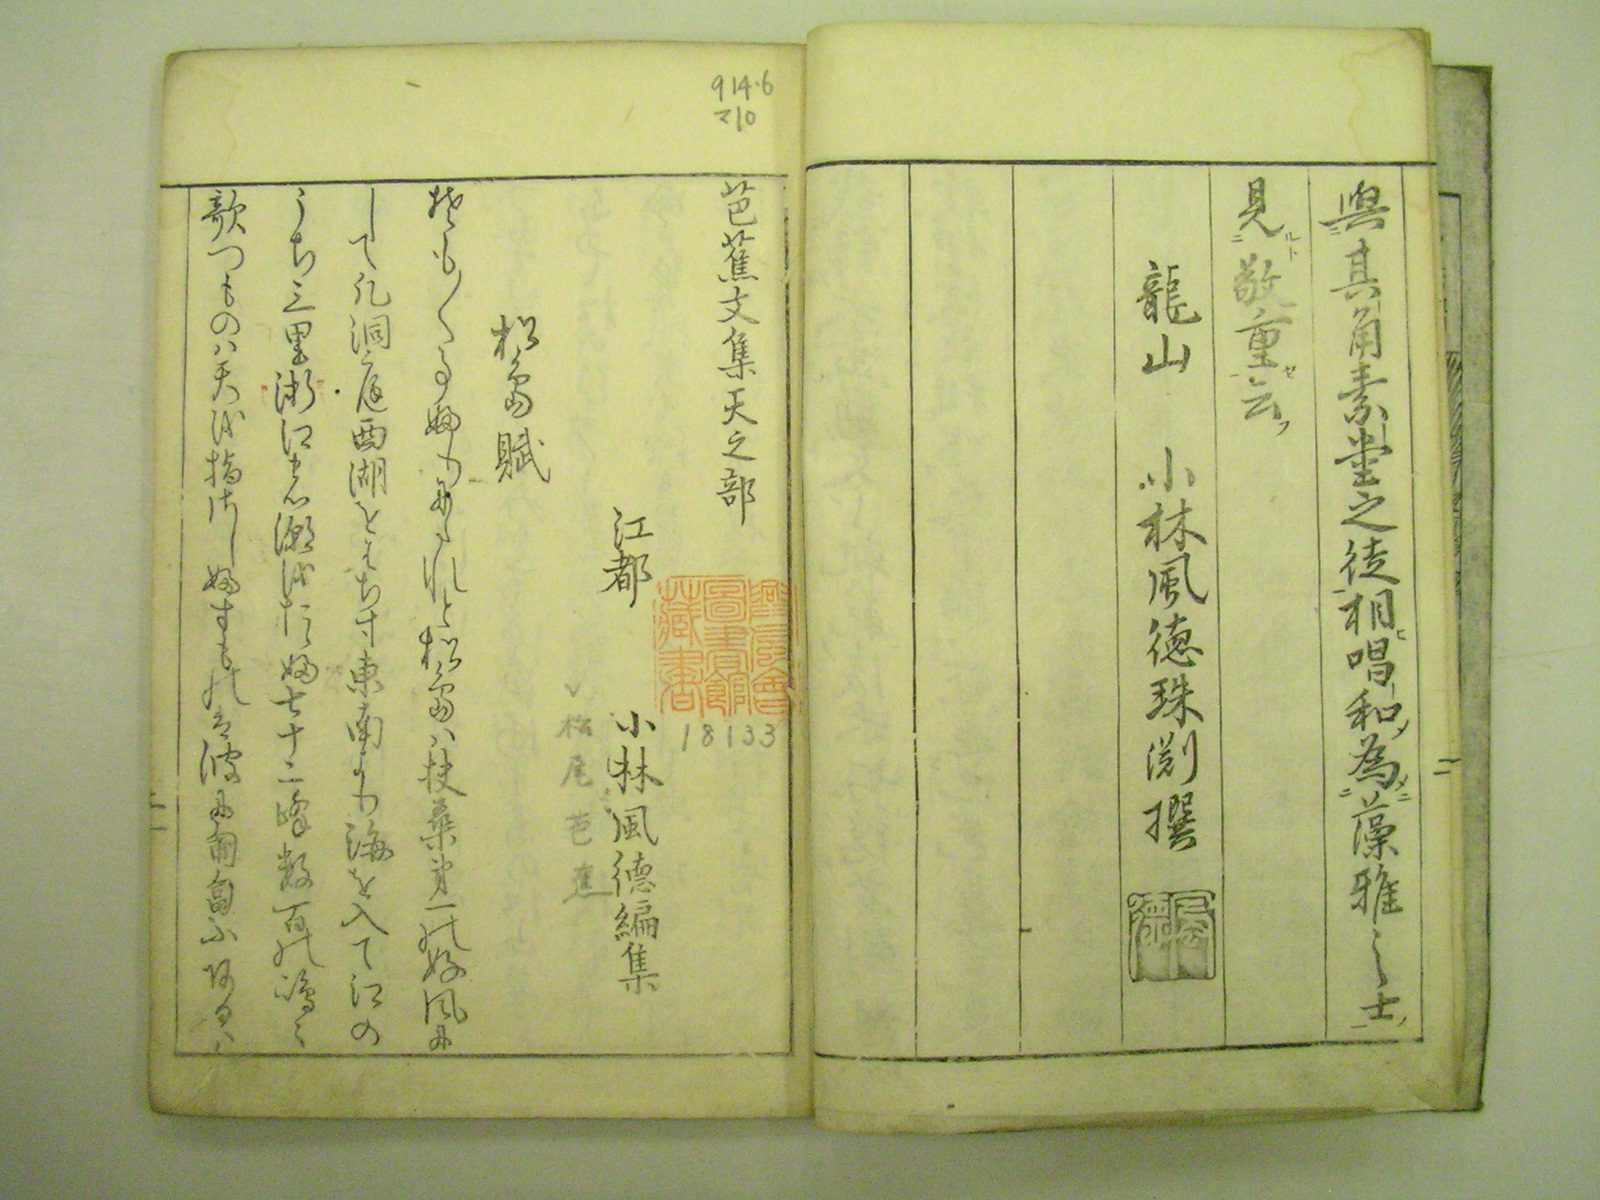 與其角素堂之徒相唱和為藻雅之士
見敬重云
龍山 小林風徳珠淵撰
914.6
マ10
芭蕉文集天之部
江都 小林風徳編集
圖書館
藏書
18133
松尾芭蕉
松島賦
そも〱ことふりにたれと松島ハ扶桑第一の好風に
して凡洞庭西湖をはちす東南より海を入て江の
うち三里浙江の潮をたゝふ七十二峰数百の島〻
歌つものハ天を指さしふすものハ波に匍匐ふあるハ